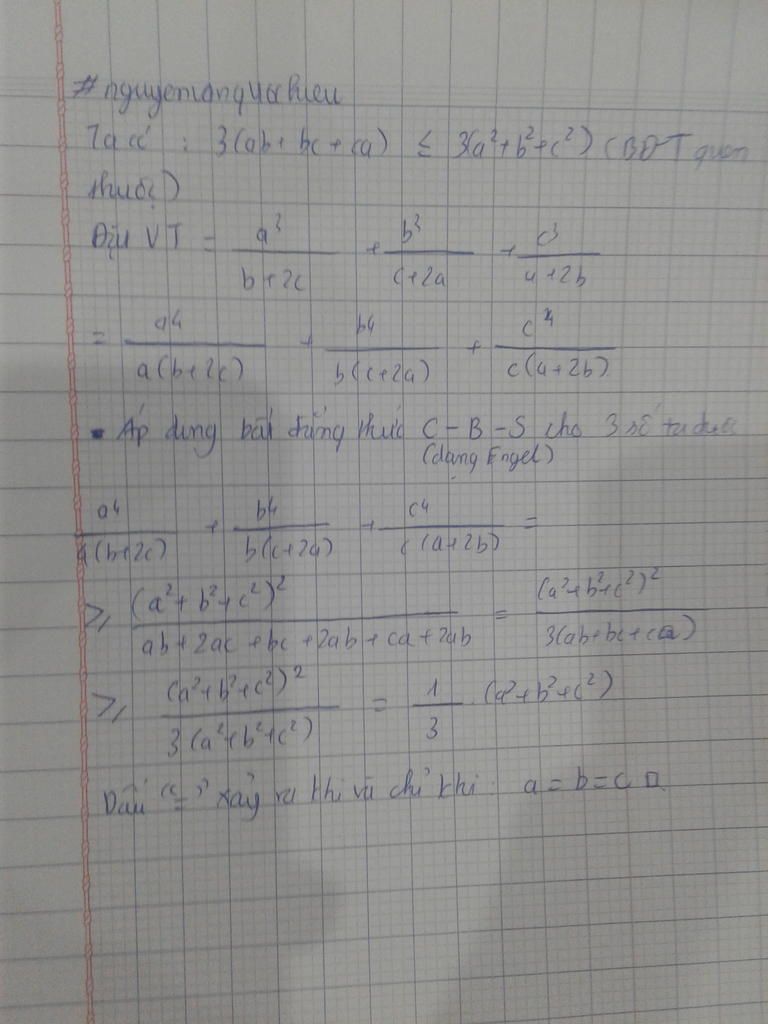 Ta có : 3(ab + bc + ca) ≤ 3(a² + b² + c²) (BĐT quen
thuộc)
Đặt VT = a³/(b+2c) + b³/(c+2a) + c³/(a+2b)
= a⁴/(a(b+2c)) + b⁴/(b(c+2a)) + c⁴/(c(a+2b))
Áp dụng bất đẳng thức C-B-S cho 3 số ta được
(dạng Engel)
a⁴/(a(b+2c)) + b⁴/(b(c+2a)) + c⁴/(c(a+2b)) =
≥ (a²+b²+c²)²/(ab+2ac+bc+2ab+ca+2ab) = (a²+b²+c²)²/(3(ab+bc+ca))
≥ (a²+b²+c²)²/(3(a²+b²+c²)) = 1/3 . (a²+b²+c²)
Dấu "=" xảy ra khi và chỉ khi: a = b = c □